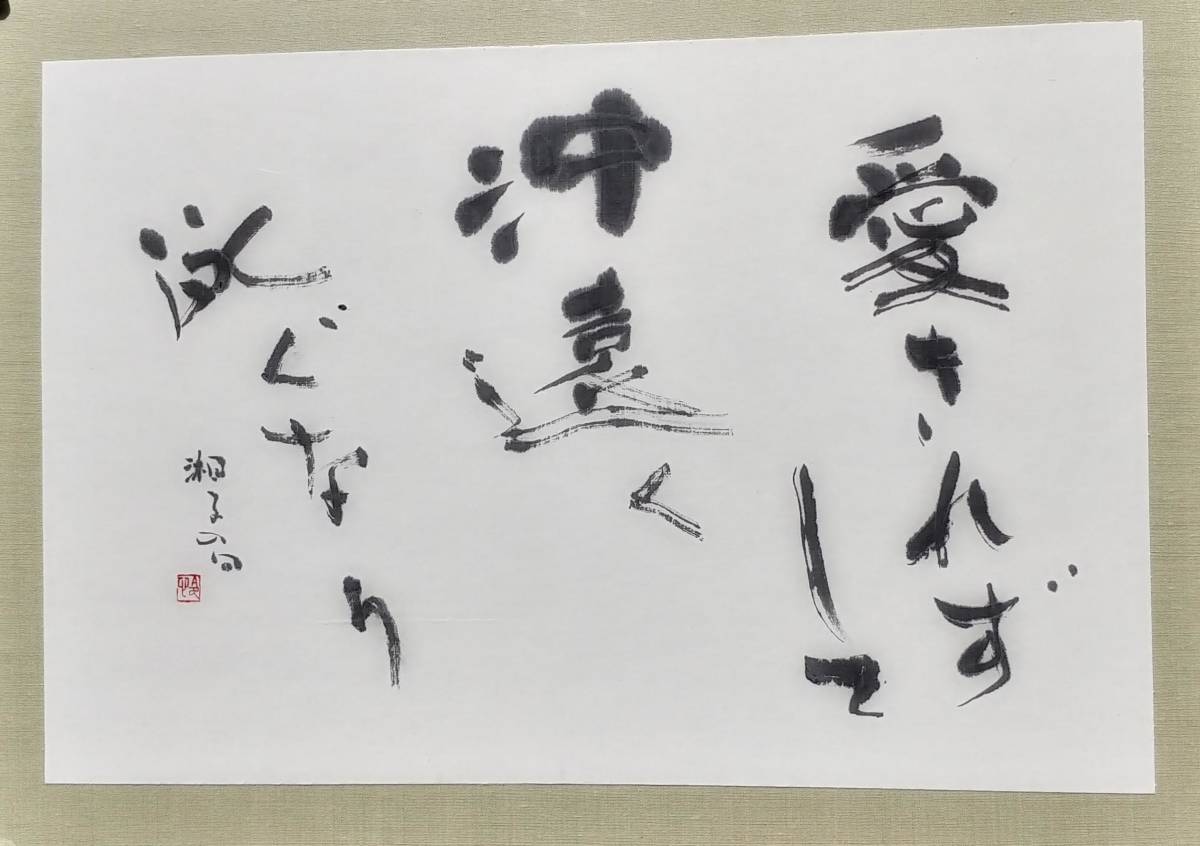 愛されず
して
沖遠く
泳ぐなり
湘子の句